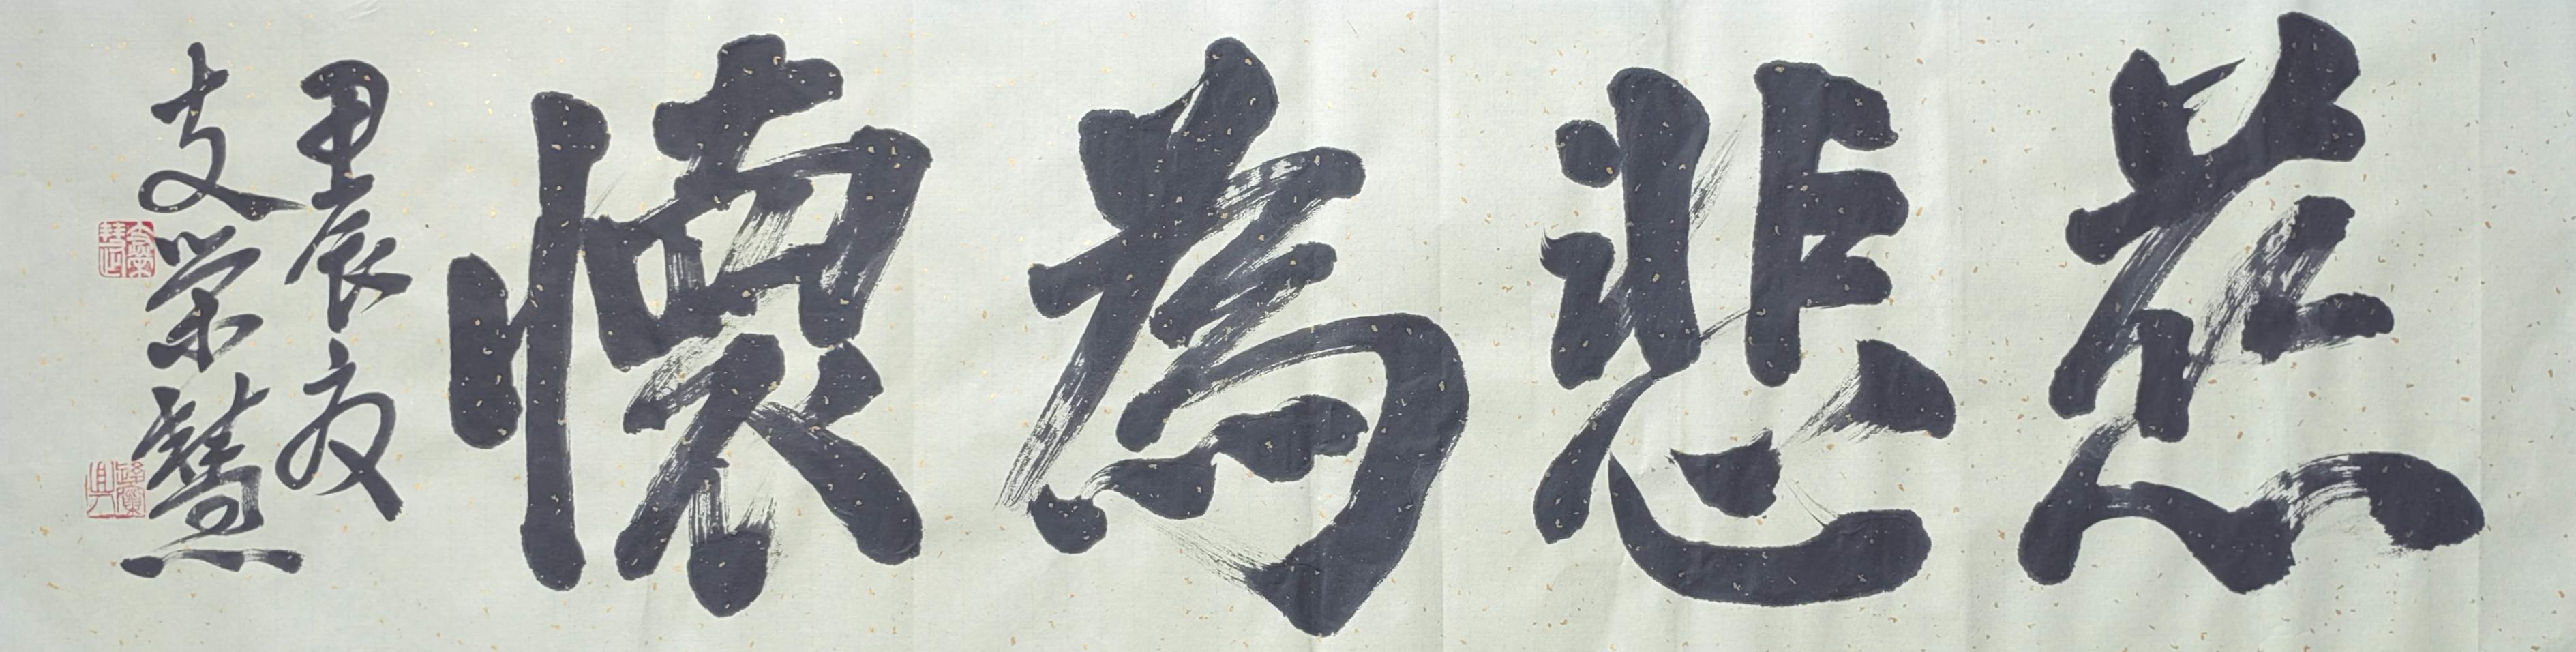 慈悲為懷
甲辰夏
支榮慧